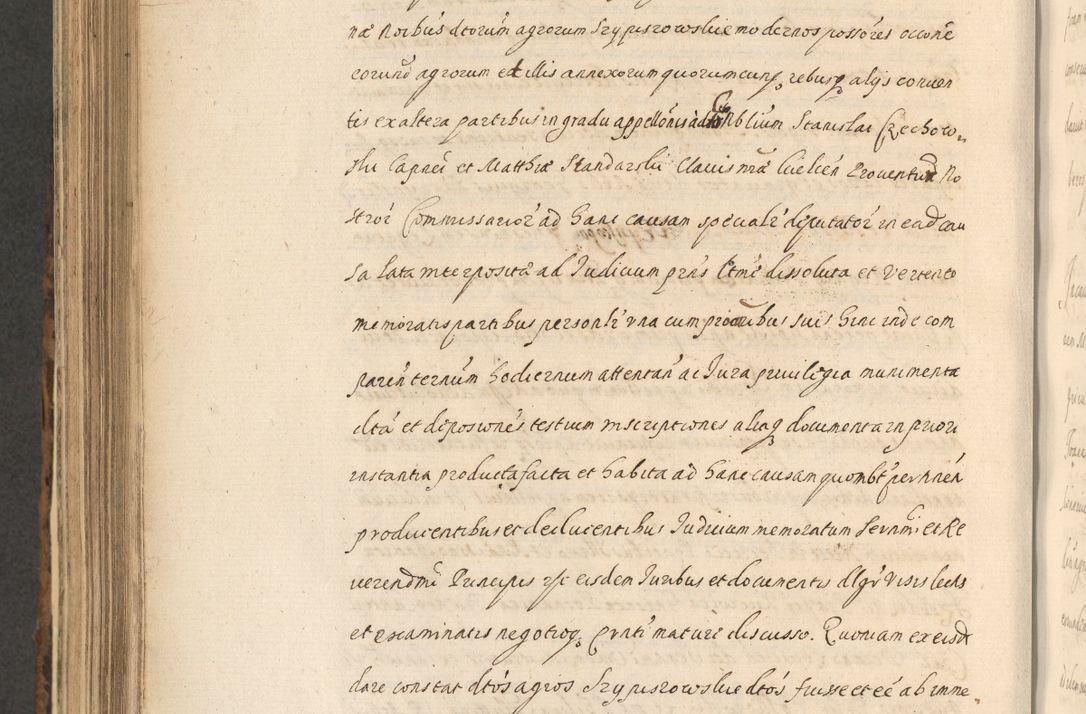 næ Noıbus dtorum agrorum Szypiszowskie modernos possores occone
eorund agrorum et illis annexorum quorumcunq rebusq alijs conuen
tis ex altera partibus in gradu appellonis ad Nblium Stanislai Czechow
ski Capnei et Matthiæ Standarski Clauis nræ Kielcen Prouentuu No
stror Commissarior ad hanc causam specialr deputator in ead cau
sa lata interposita ad Judicium prns ltme dissoluta et vertente
memoratis partibus personlr vna cum procuribus suis hinc inde com
paren ternum hodiernum attentan ac Jura priuilegia munimenta
dta et deposiones testium inscriptiones aliaq documenta in priori
instantia producta facta et habita ad hanc causam quombt pertinen
producentibus et deducentibus Judicium memoratum Sernmi et Re
uerendmi Principis rsc eisdem Juribus et documentis dlgr visis lectis
et examinatis negotioq prnti mature discusso. Quoniam ex eisd
dare constat dtos agros Szypiszowskie dtos fuisse et eé ab imme